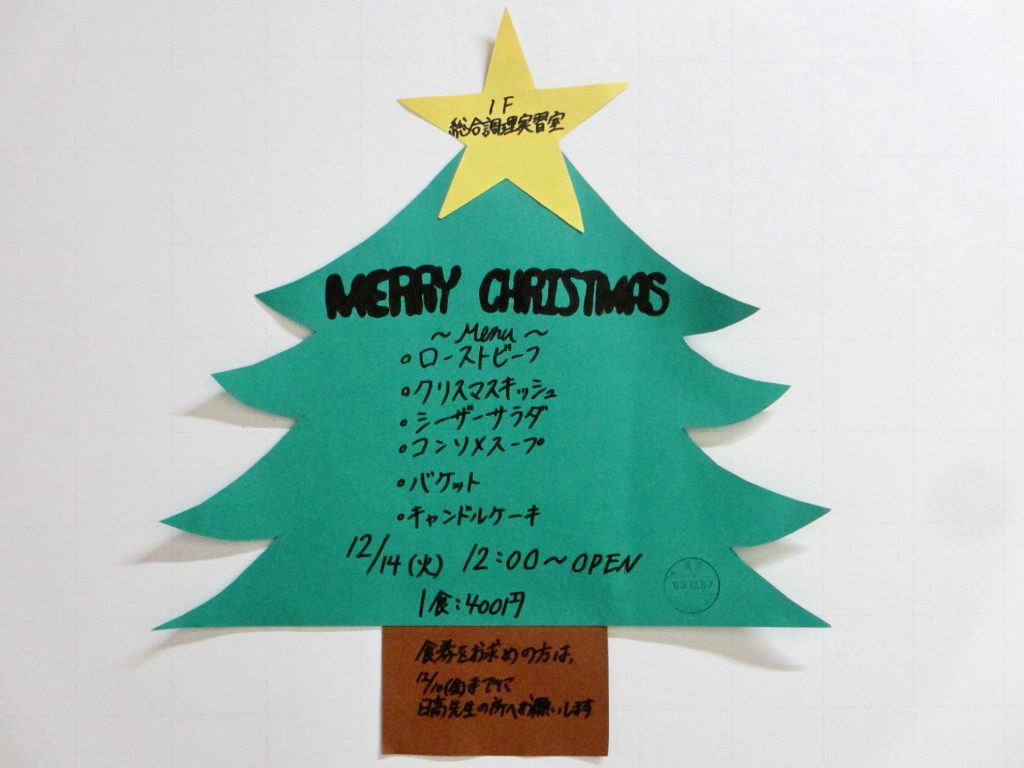 1F
総合調理実習室
MERRY CHRISTMAS
～Menu～
○ローストビーフ
○クリスマスキッシュ
○シーザーサラダ
○コンソメスープ
○バケット
○キャンドルケーキ
12/14(火) 12:00～OPEN
1食:400円
食券をお求めの方は、
12/10(金)までに
日高先生の所へお願いします